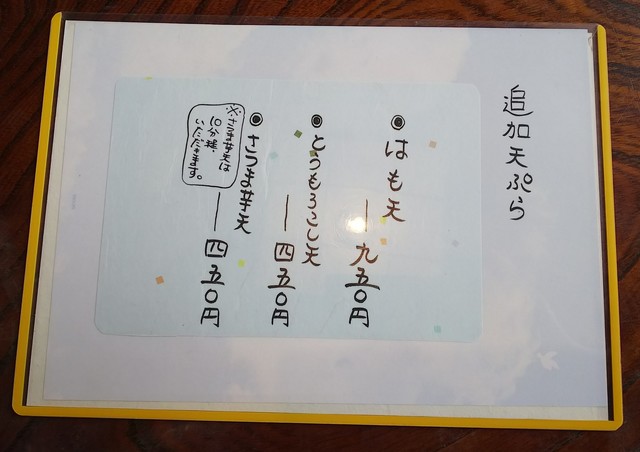 追加天ぷら
◉はも天
—九五〇円
◉とうもろこし天
—四五〇円
◉さつま芋天
—四五〇円
※さつま芋天は
10分程
いただきます。